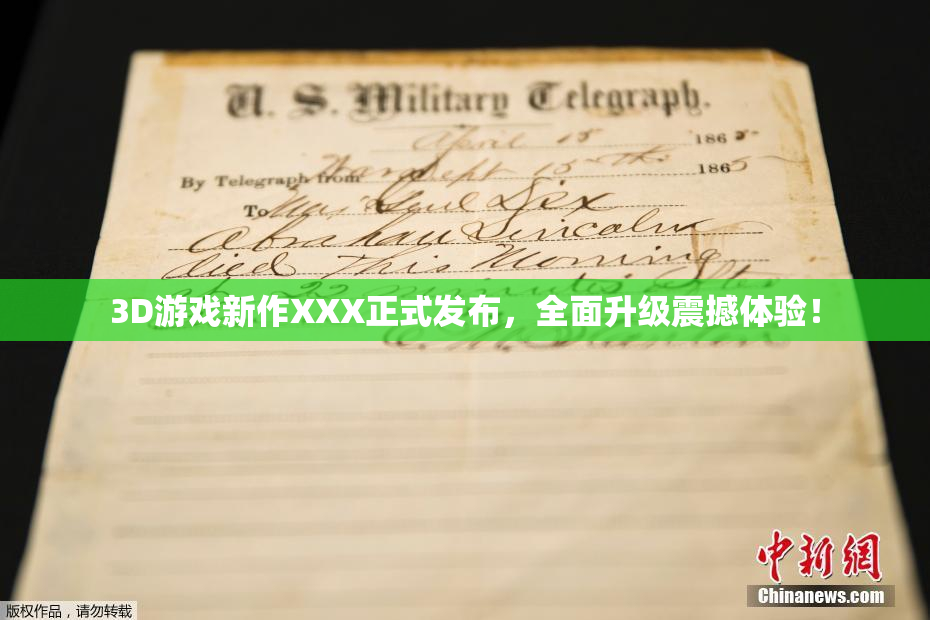 U. S. Military Telegraph.
April 15 1865
By Telegraph from War Dept 15th 1865
To Maj Genl Dix
Abraham Lincoln
died This Morning
at 22 minutes after
3D游戏新作XXX正式发布，全面升级震撼体验！
E. M. Stanton
中新网
Chinanews.com
版权作品，请勿转载